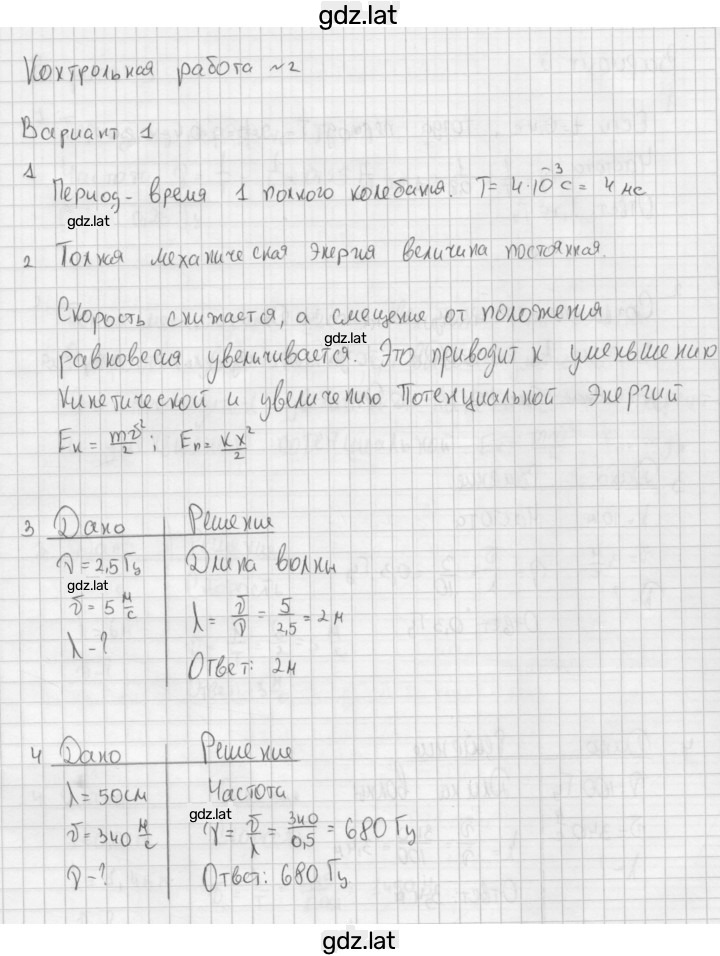 gdz.lat
Контрольная работа №2
Вариант 1
1 Период - время 1 полного колебания. T = 4·10⁻³ c = 4 мс
gdz.lat
2 Полная механическая энергия величина постоянная.
Скорость снижается, а смещение от положения
gdz.lat
равновесия увеличивается. Это приводит к уменьшению
кинетической и увеличению потенциальной энергий
Eк = mv²/2 ; Eп = kx²/2
3 Дано Решение
ν = 2,5 Гц Длина волны
gdz.lat
v = 5 м/с λ = v/ν = 5/2,5 = 2 м
λ - ?
Ответ: 2 м
4 Дано Решение
λ = 50 см Частота
gdz.lat
v = 340 м/с ν = v/λ = 340/0,5 = 680 Гц
ν - ? Ответ: 680 Гц
gdz.lat